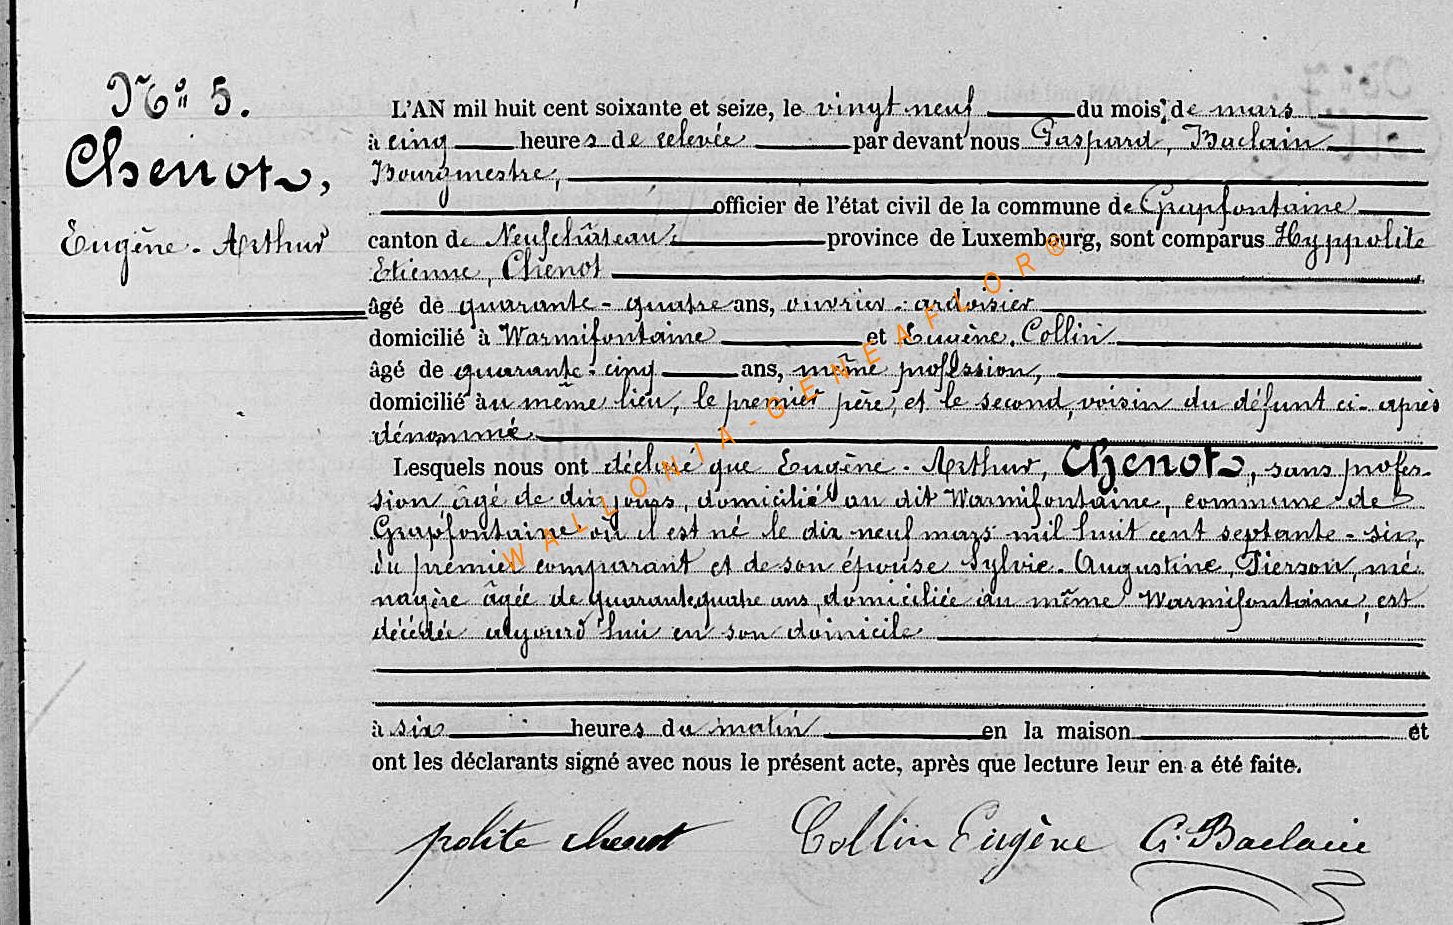 N° 5.
Chenot,
Eugène-Arthur
L'AN mil huit cent soixante et seize, le vingt neuf du mois de mars
à cinq heures de relevée par devant nous Gaspard, Baclain
Bourgmestre,
officier de l'état civil de la commune de Grapfontaine
canton de Neufchâteau, province de Luxembourg, sont comparus Hyppolite
Etienne, Chenot
âgé de quarante-quatre ans, ouvrier-ardoisier
domicilié à Warmifontaine et Eugène, Collin
âgé de quarante-cinq ans, même profession,
domicilié au même lieu, le premier père, et le second, voisin du défunt ci-après
dénommé
Lesquels nous ont déclaré que Eugène-Arthur, Chenot, sans profes-
sion, âgé de dix jours, domicilié au dit Warmifontaine, commune de
Grapfontaine où il est né le dix neuf mars mil huit cent septante-six,
du premier comparant et de son épouse Sylvie-Augustine, Pierson, mé
nagère âgée de quarante quatre ans, domiciliée au même Warmifontaine, est
décédée aujourd'hui en son domicile
à six heures du matin en la maison et
ont les déclarants signé avec nous le présent acte, après que lecture leur en a été faite.
polite chenot Collin Eugène G. Baclain
WALLONIA-GENEAFLOR®